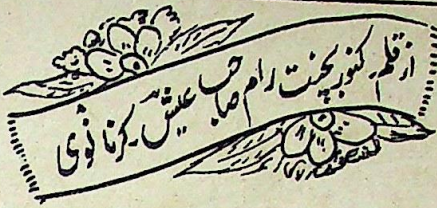 از قلم کنور بچنت رام صاحب عیش کرنانوی